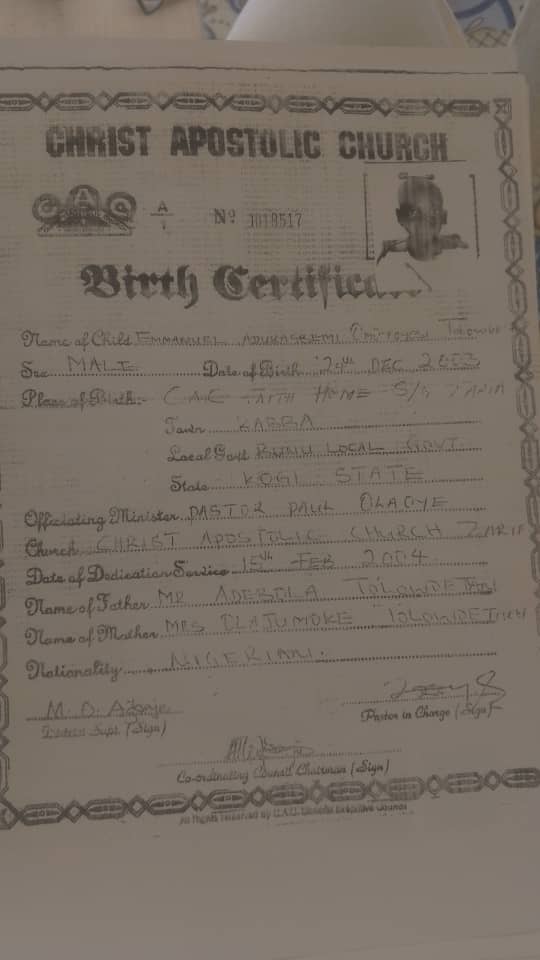 CHRIST APOSTOLIC CHURCH
CAC A/1 Nº 1018517
Birth Certificate
Name of Child EMMANUEL
Sex MALE Date of Birth 29th DEC 2003
Place of Birth:- C.A.C FAITH HOME S/G ZARIA
Town KABBA
Local Govt BUNU LOCAL GOVT.
State KOGI STATE
Officiating Minister PASTOR PAUL OLAOYE
Church CHRIST APOSTOLIC CHURCH ZARIA
Date of Dedication Service 15th FEB 2004
Name of Father MR ADEBOLA
Name of Mother MRS OLAJUMOKE
Nationality NIGERIAN.
M. O.
District Supt. (Sign) Pastor in Charge (Sign)
Co-ordinating Council Chairman (Sign)
All Rights reserved by C.A.C. General Executive Council